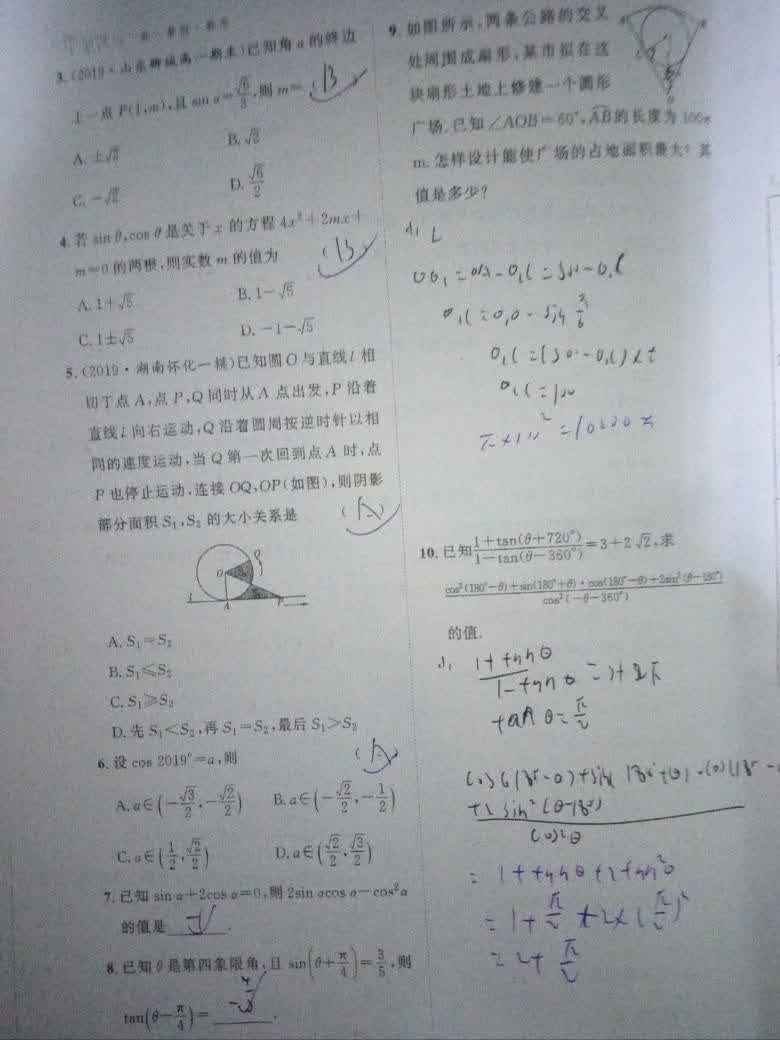 3. (2019·山东聊城高一期末)已知角α的终边
上一点P(1,m),且sin α=√6/3,则m= (B)
A. ±√2
B. √2
C. -√2
D. √6/2
4. 若sin θ,cos θ是关于x的方程4x²+2mx+
m=0的两根,则实数m的值为 (B)
A. 1+√5
B. 1-√5
C. 1±√5
D. -1-√5
5. (2019·湖南怀化一模)已知圆O与直线l相
切于点A,点P,Q同时从A点出发,P沿着
直线l向右运动,Q沿着圆周按逆时针以相
同的速度运动,当Q第一次回到点A时,点
P也停止运动,连接OQ,OP(如图),则阴影
部分面积S₁,S₂的大小关系是 (A)
O Q
l A P
A. S₁=S₂
B. S₁≤S₂
C. S₁≥S₂
D. 先S₁<S₂,再S₁=S₂,最后S₁>S₂
6. 设cos 2019°=a,则 (A)
A. a∈(-√3/2,-√2/2)
B. a∈(-√2/2,-1/2)
C. a∈(1/2,√2/2)
D. a∈(√2/2,√3/2)
7. 已知sin α+2cos α=0,则2sin αcos α-cos²α
的值是
8. 已知θ是第四象限角,且sin(θ+π/4)=3/5,则
tan(θ-π/4)= -4/3.
9. 如图所示,两条公路的交叉
处周围成扇形,某市拟在这
块扇形土地上修建一个圆形
广场.已知∠AOB=60°,AB的长度为100π
m.怎样设计能使广场的占地面积最大?其
值是多少?
π×100²=10000π
10. 已知(1+tan(θ+720°))/(1-tan(θ-360°))=3+2√2,求
(cos²(180°-θ)+sin(180°+θ)·cos(180°-θ)+2sin²(θ-180°))/(cos²(-θ-360°))
的值.
(1+tanθ)/(1-tanθ)=3+2√2
tanθ=√2/2
+2sin²(θ-180°)
cos²θ
=1+tanθ+2tan²θ
=1+√2/2+2×(√2/2)²
=2+√2/2